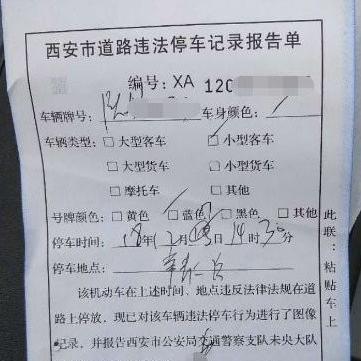 西安市道路违法停车记录报告单
编号：XA 120
车辆牌号： 车身颜色：
车辆类型：□ 大型客车 □ 小型客车
□ 大型货车 □ 小型货车
□ 摩托车 □ 其他
号牌颜色：□ 黄色 □ 蓝色 □ 黑色 □ 其他
停车时间：18年12月 日14时30分
停车地点：
该机动车在上述时间、地点违反法律法规在道
路上停放，现已对该车辆违法停车行为进行了图像
记录，并报告西安市公安局交通警察支队未央大队
此联：粘贴车上